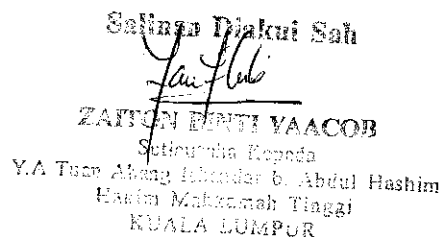 Salinan Diakui Sah
ZAITON BINTI YAACOB
Setiausaha Kepada
Y.A Tuan Abang Iskandar b. Abdul Hashim
Hakim Mahkamah Tinggi
KUALA LUMPUR